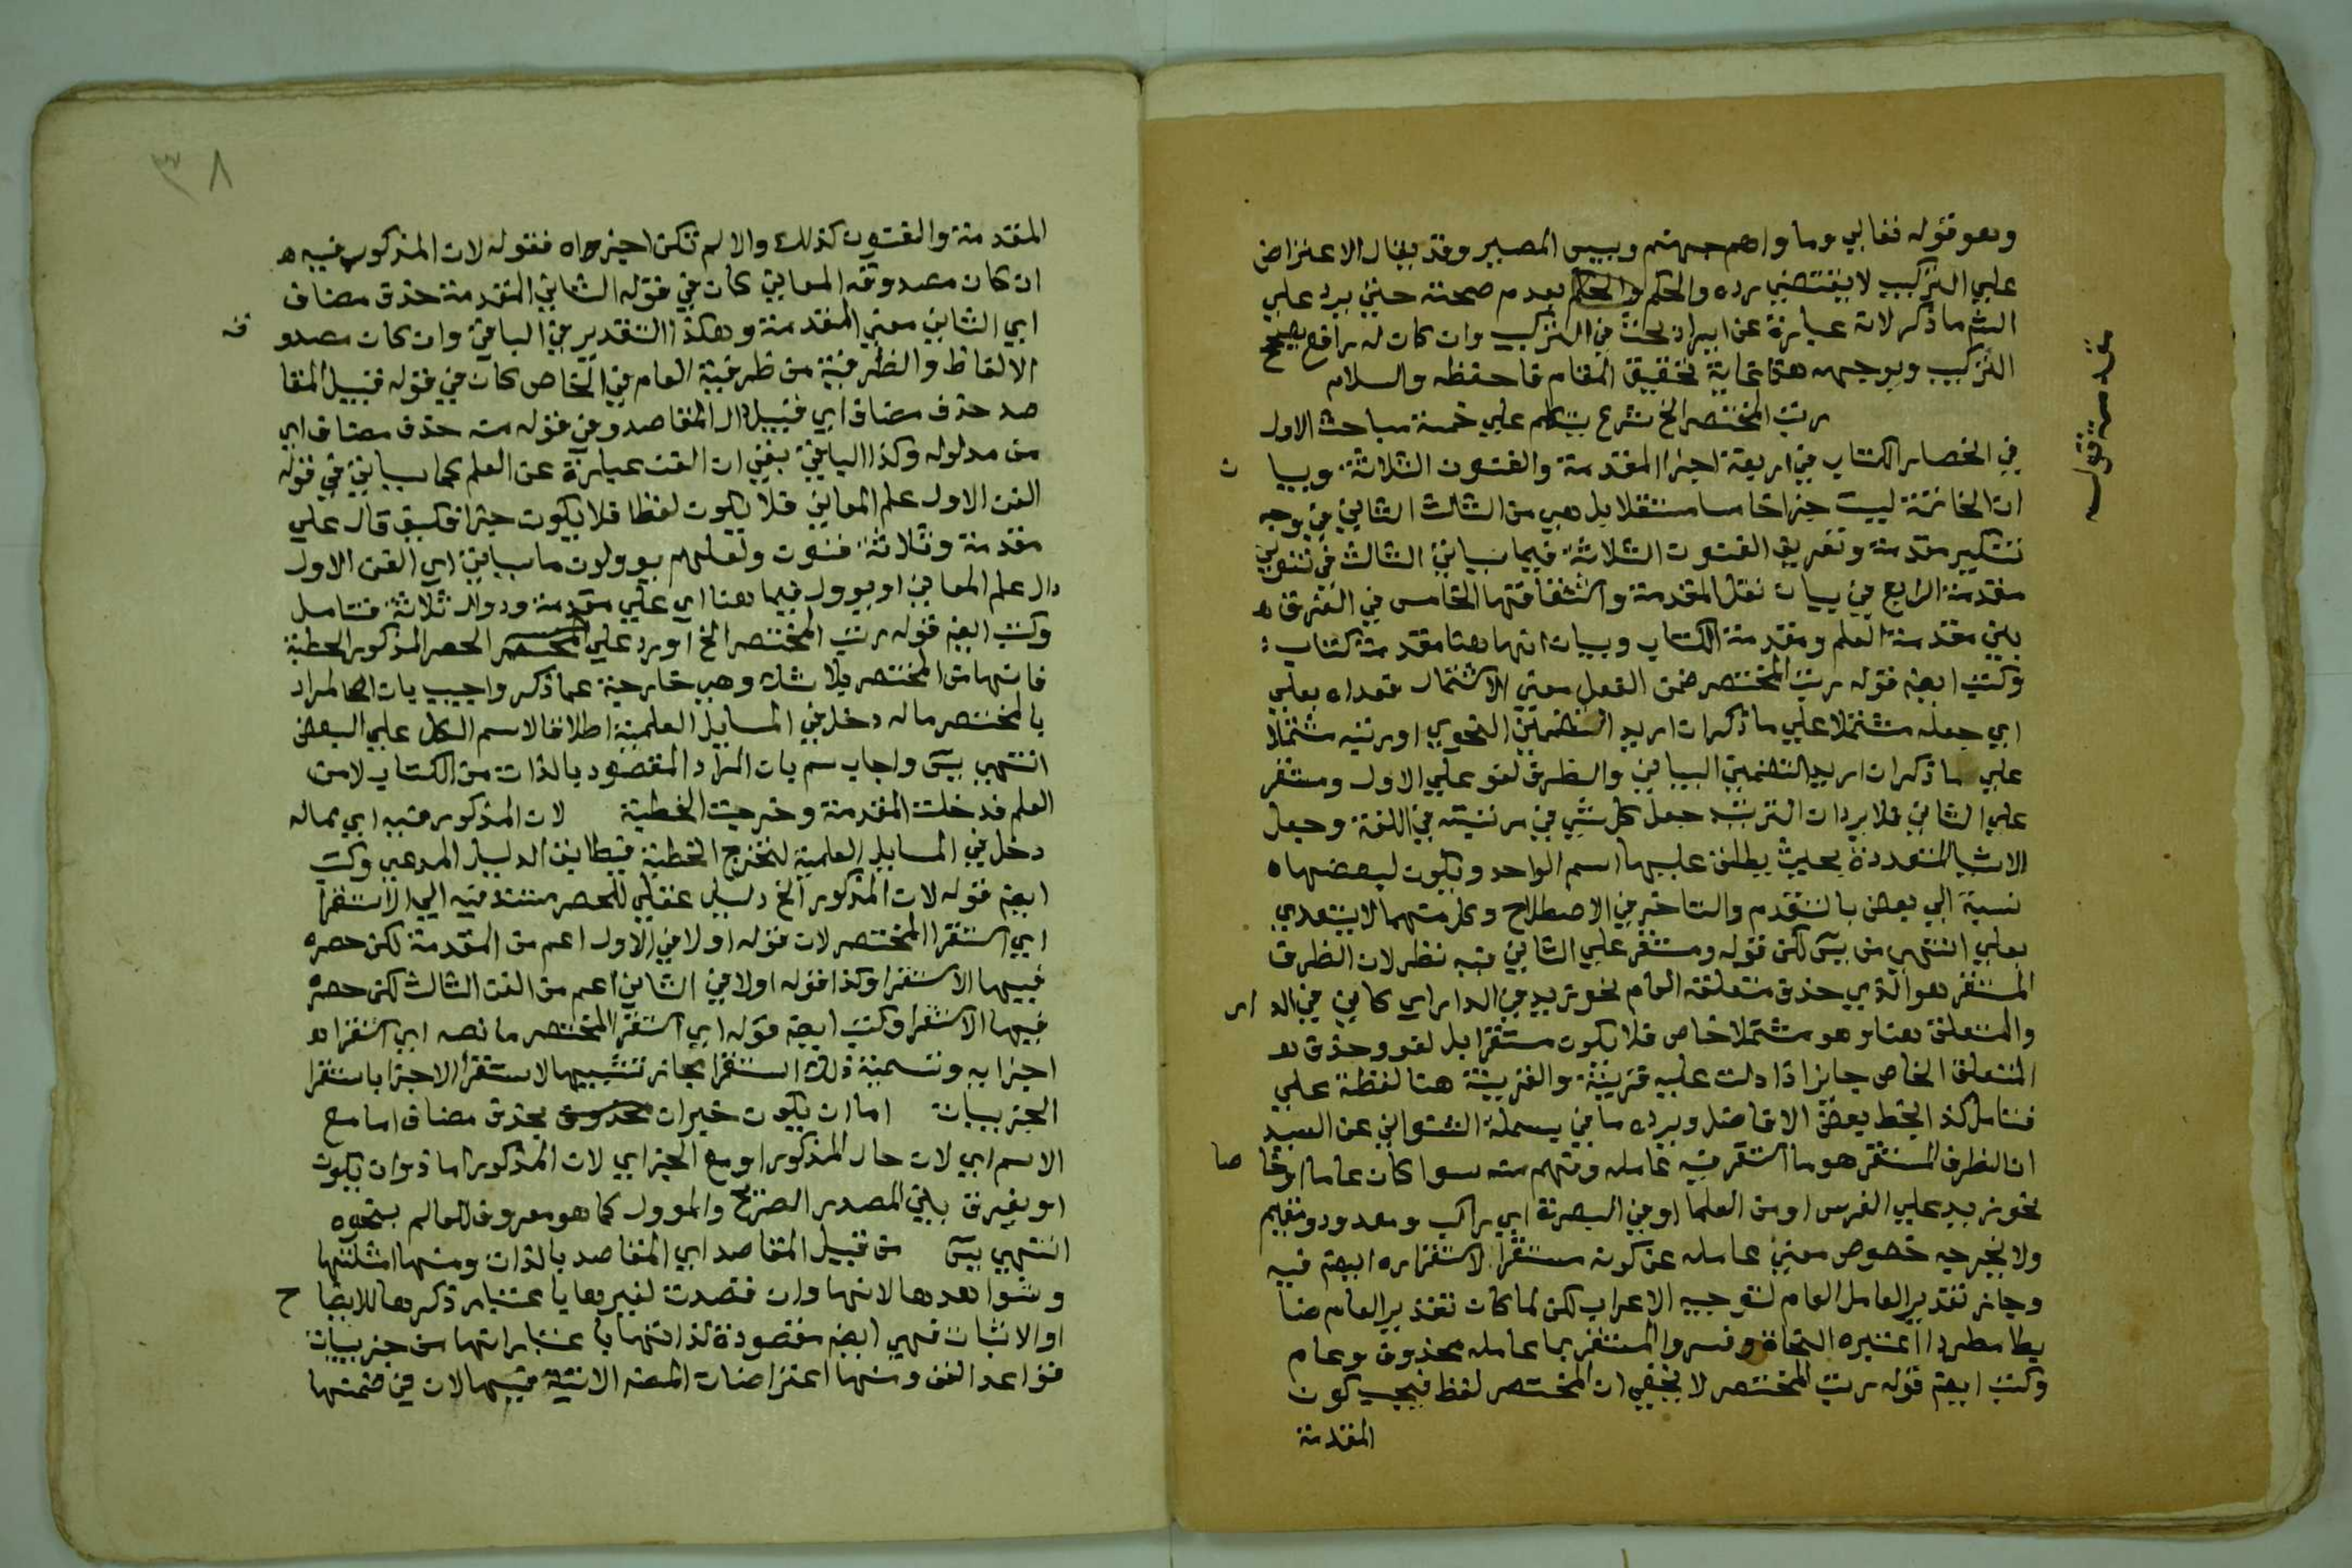 وهو قوله تعالي وماواهم جهنم وبيس المصير وقد يقال الاعتراض
علي التركيب لا يقتضي رده والحكم بعدم صحته حتي يرد علي
الشم ما ذكر لانه عبارة عن ايراد بحث في التركيب وان كان له رافع يصحح
التركيب ويوجهه هذا غاية تحقيق المقام فاحفظه والسلام
رتب المختصر الخ شرع يتكلم علي خمسة مباحث الاول
في انحصار الكتاب في اربعة اجزا المقدمة والفنون الثلاثة وبيا ن
ان الخاتمة ليست جزا خامسا مستقلا بل هي من الثالث الثاني في وجه
تنكير مقدمة وتعريف الفنون الثلاثة فيما سياتي الثالث في تنوين
مقدمة الرابع في بيان نقل المقدمة واشتقاقها الخامس في الفرق
بين مقدمة العلم ومقدمة الكتاب وبيان انها هنا مقدمة كتاب
وكتب ايضا قوله رتب المختصر ضمن الفعل معني الاشتمال فعداه بعلي
اي جعله مشتملا علي ما ذكر ان اريد التضمين النحوي او رتبه مشتملا
علي ما ذكر ان اريد التضمين البياني والظرف لغو علي الاول ومستقر
علي الثاني فلا يرد ان الترتيب جعل كل شي في مرتبته في اللغة وجعل
الاشيا المتعددة بحيث يطلق عليها اسم الواحد ويكون لبعضها
نسبة الي بعض بالتقدم والتاخر في الاصطلاح وكل منهما لا يتعدي
بعلي انتهي من يس لكن قوله ومستقر علي الثاني فيه نظر لان الظرف
المستقر هو الذي حذف متعلقه العام نحو زيد في الدار اي كاين في الد ار
والمتعلق هنا وهو مشتملا خاص فلا يكون مستقرا بل لغو وحذف
المتعلق الخاص جايز اذا دلت عليه قرينة والقرينة هنا لفظة علي
فتامل كذا بخط بعض الافاضل ويرده ما في بسملة الشنواني عن السيد
ان الظرف المستقر هو ما استقر فيه عامله وفهم منه سوا كان عاما او خا صا
نحو زيد علي الفرس او من العلما او في البصرة اي راكب ومعدود ومقيم
ولا يخرجه خصوص معني عامله عن كونه مستقرا لاستقراره ايضا فيه
وجاز تقدير العامل العام لتوجيه الاعراب لكن لما كان تقدير العام ضا
بطا مطردا اعتبره النحاة وفسروا المستقر بما عامله محذوف وعام
وكتب ايضا قوله رتب المختصر لا يخفي ان المختصر لفظ فيجب كون
المقدمة
مقدمة قوله
٣٨
المقدمة والفنون كذلك والا لم تكن اجزاه فقوله لان المذكور فيه
ان كان مصدوقه المعاني كان في قوله الثاني المقدمة حذف مضاف
اي الثاني معني المقدمة وهكذا التقدير في الباقي وان كان مصدو قه
الالفاظ والظرفية من ظرفية العام في الخاص كان في قوله قبيل المقا
صد حذف مضاف اي قبيل دال المقاصد وفي قوله منه حذف مضاف اي
من مدلوله وكذا الباقي بقي ان الفن عبارة عن العلم كما سياتي في قوله
الفن الاول علم المعاني فلا يكون لفظا فلا يكون جزا فكيف قال علي
مقدمة وثلاثة فنون ولعلهم يوولون ما سياتي اي الفن الاول
دال علم المعاني او يوول فيما هنا اي علي مقدمة ودوال ثلاثة فتامل
وكتب ايضا قوله رتب المختصر الخ اورد علي الحصر المذكور الخطبة
فانها من المختصر بلا شك وهي خارجة عما ذكر واجيب بان المراد
بالمختصر ماله دخل في المسايل العلمية اطلاقا لاسم الكل علي البعض
انتهي يس واجاب سم بان المراد المقصود بالذات من الكتاب لا من
العلم فدخلت المقدمة وخرجت الخطبة لان المذكور فيه اي مماله
دخل في المسايل العلمية لتخرج الخطبة فيطابق الدليل المدعي وكتب
ايضا قوله لان المذكور الخ دليل عقلي للحصر مستند فيه الي الاستقرا
اي استقرا المختصر لان قوله اولا في الاول اعم من المقدمة لكن حصره
فيها الاستقرا وكذا قوله اولا في الثاني اعم من الفن الثالث لكن حصره
فيها الاستقرا وكتب ايضا قوله اي استقرا المختصر ما نصه اي استقرا
اجزايه وتسمية ذلك استقرا مجاز تشبيها لاستقرا الاجزا باستقرا
الجزييات اما ان يكون خبر ان بحذف مضاف اما مع
الاسم اي لان حال المذكور او مع الخبر اي لان المذكور اما ذو ان يكون
او بفرق بين المصدر الصريح والموول كما هو معروف للعالم بنحوه
انتهي يس من قبيل المقاصد اي المقاصد بالذات ومنها امثلتها
وشواهدها لانها وان قصدت لغيرها باعتبار ذكرها للايضا ح
او الاثبات فهي ايضا مقصودة لذاتها باعتبار انها من جزييات
قواعد الفن ومنها اعتراضات المصنف الاتية فيها لان في ضمنها